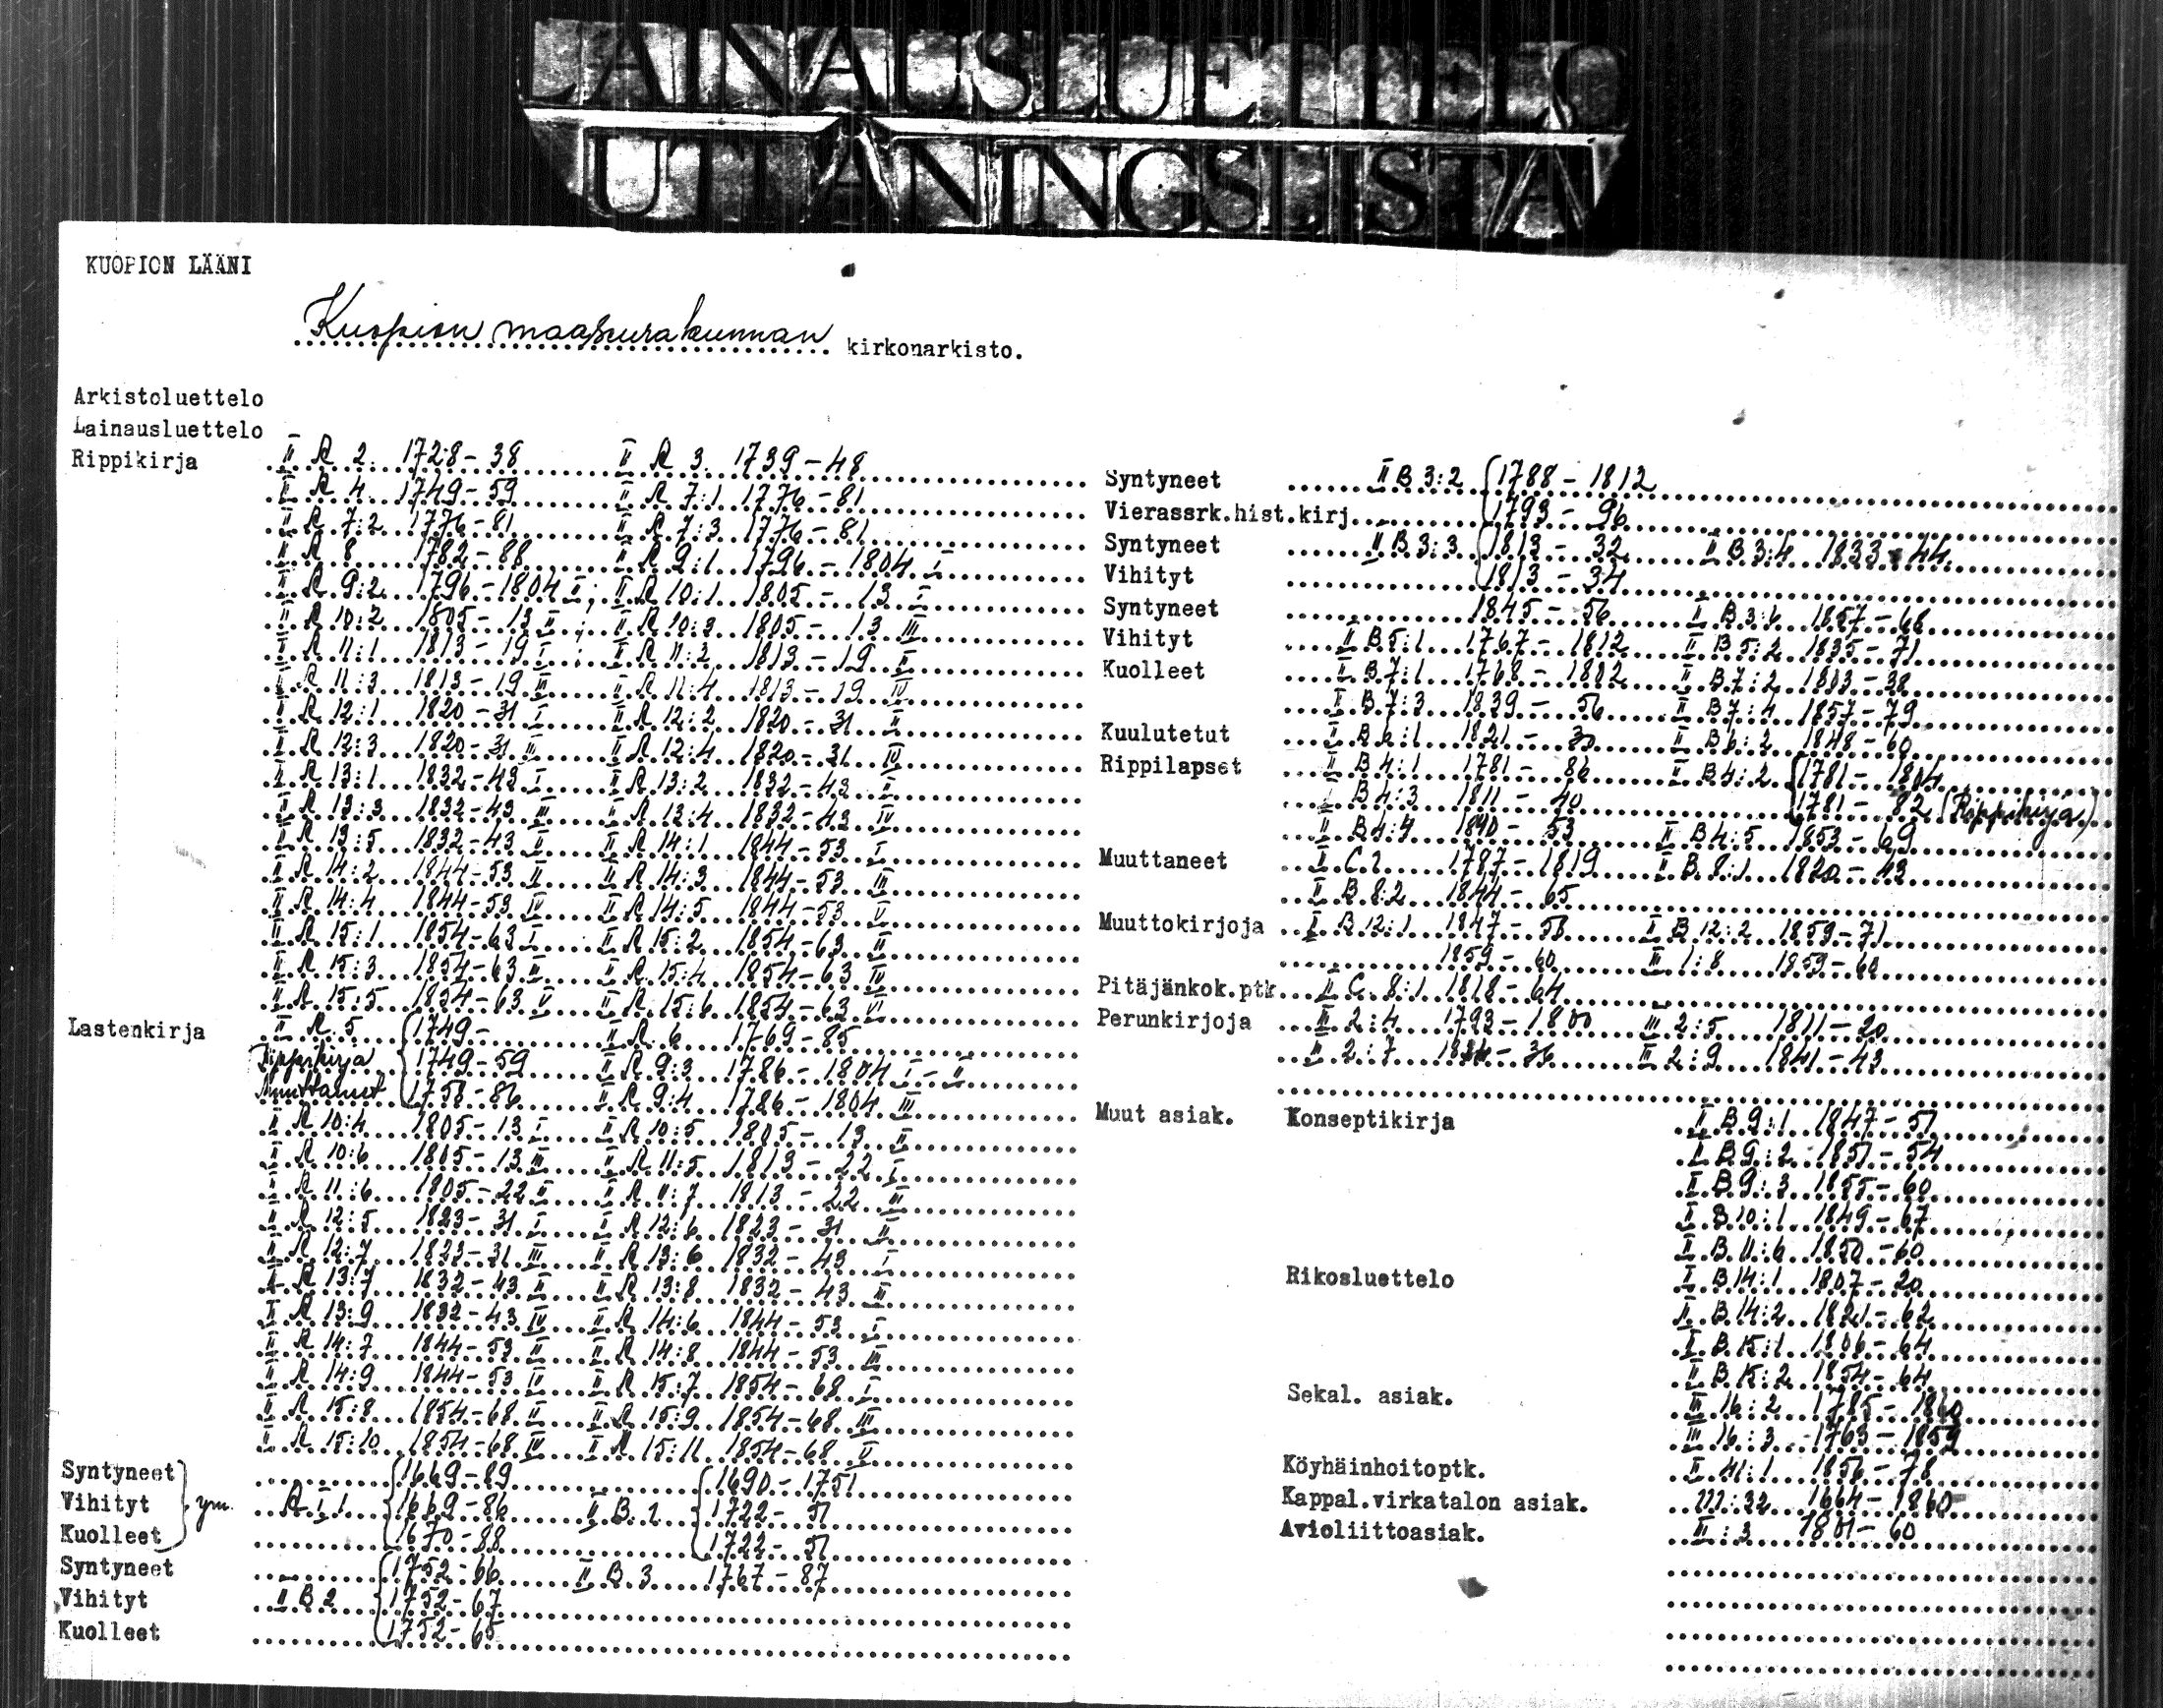 LAINAUSLUETTELO
UTLÅNINGSLISTA
KUOPION LÄÄNI
Kuopion maaseurakunnan kirkonarkisto.
Arkistoluettelo
Lainausluettelo
Rippikirja II A 2 1728-38 II A 3 1739-48
II A 4 1749-59 II A 7:1 1776-81
II A 7:2 1776-81 II A 7:3 1776-81
II A 8 1782-88 II A 9:1 1796-1804 I
II A 9:2 1796-1804 II; II A 10:1 1805-13 I
II A 10:2 1805-13 II; II A 10:3 1805-13 III
II A 11:1 1813-19 I; II A 11:2 1813-19 II
II A 11:3 1813-19 III II A 11:4 1813-19 IV
II A 12:1 1820-31 I II A 12:2 1820-31 II
II A 12:3 1820-31 III II A 12:4 1820-31 IV
II A 13:1 1832-43 I II A 13:2 1832-43 II
II A 13:3 1832-43 III II A 13:4 1832-43 IV
II A 13:5 1832-43 V II A 14:1 1844-53 I
II A 14:2 1844-53 II II A 14:3 1844-53 III
II A 14:4 1844-53 IV II A 14:5 1844-53 V
II A 15:1 1854-63 I II A 15:2 1854-63 II
II A 15:3 1854-63 III II A 15:4 1854-63 IV
II A 15:5 1854-63 V II A 15:6 1854-63 VI
Lastenkirja II A 5 1749- II A 6 1769-85
Rippikirja 1749-59 II A 9:3 1786-1804 I-II
Muuttaneet 1758-86 II A 9:4 1786-1804 III
II A 10:4 1805-13 I II A 10:5 1805-13 II
II A 10:6 1805-13 III II A 11:5 1813-22 I
II A 11:6 1805-22 II II A 11:7 1813-22 III
II A 12:5 1823-31 I II A 12:6 1823-31 II
II A 12:7 1823-31 III II A 13:6 1832-43 I
II A 13:7 1832-43 II II A 13:8 1832-43 III
II A 13:9 1832-43 IV II A 14:6 1844-53 I
II A 14:7 1844-53 II II A 14:8 1844-53 III
II A 14:9 1844-53 IV II A 15:7 1854-68 I
II A 15:8 1854-68 II II A 15:9 1854-68 III
II A 15:10 1854-68 IV II A 15:11 1854-68 V
Syntyneet 1669-89 1690-1751
Vihityt ym. A I 1 1669-86 II B 1 1722-51
Kuolleet 1670-88 1722-51
Syntyneet 1752-66 II B 3 1767-87
Vihityt II B 2 1752-67
Kuolleet 1752-65
Syntyneet II B 3:2 1788-1812
Vierassrk.hist.kirj. 1793-96
Syntyneet II B 3:3 1813-32 II B 3:4 1833-44
Vihityt 1813-34
Syntyneet 1845-56 II B 3:6 1857-68
Vihityt II B 5:1 1767-1812 II B 5:2 1835-71
Kuolleet II B 7:1 1768-1802 II B 7:2 1803-38
II B 7:3 1839-56 II B 7:4 1857-79
Kuulutetut II B 6:1 1821-30 II B 6:2 1848-60
Rippilapset II B 4:1 1781-86 II B 4:2 1781-1804
II B 4:3 1811-40 1781-82 (Rippikirja)
II B 4:4 1840-53 II B 4:5 1853-69
Muuttaneet II C 1 1787-1819 II B 8:1 1820-43
II B 8:2 1844-65
Muuttokirjoja II B 12:1 1847-58 II B 12:2 1859-71
1859-60 III 1:8 1859-60
Pitäjänkok.ptk II C 8:1 1818-64
Perunkirjoja III 2:4 1793-1800 III 2:5 1811-20
III 2:7 1834-36 III 2:9 1841-43
Muut asiak. Konseptikirja II B 9:1 1847-51
II B 9:2 1851-54
II B 9:3 1855-60
II B 10:1 1849-67
II B 11:6 1850-60
Rikosluettelo II B 14:1 1807-20
II B 14:2 1821-62
II B 15:1 1806-64
II B 15:2 1854-64
Sekal. asiak. III 16:2 1785-1860
III 16:3 1763-1859
Köyhäinhoitoptk. II 41:1 1856-78
Kappal.virkatalon asiak. III:32 1664-1860
Avioliittoasiak. III:3 1801-60